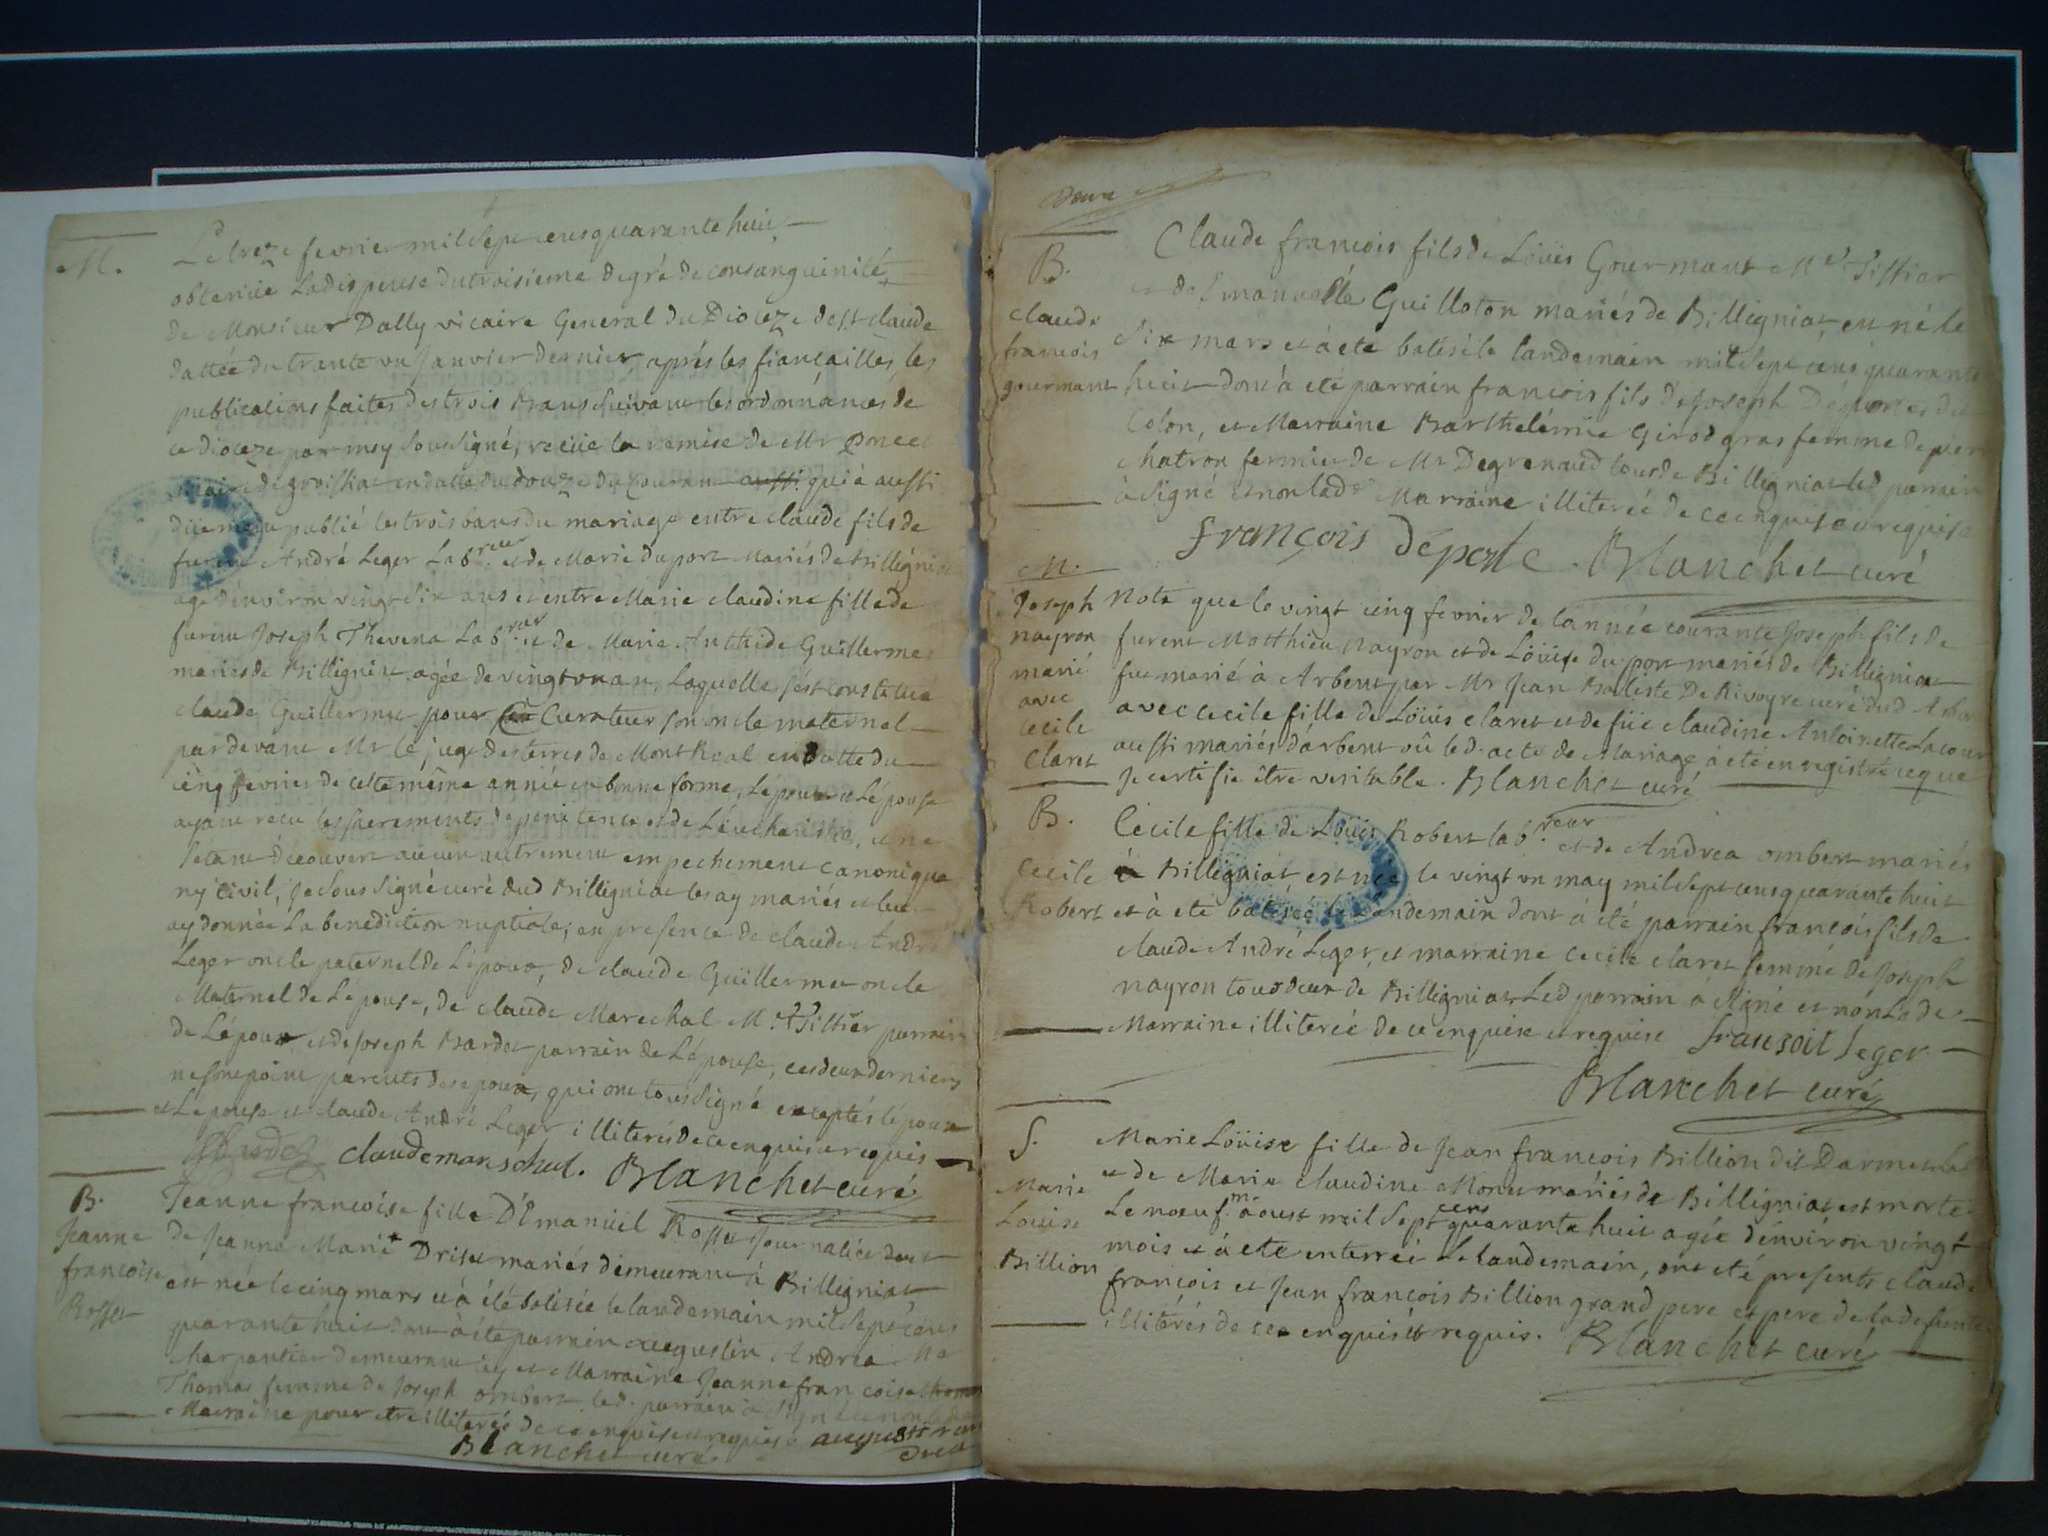 M.
Le treze fevrier mil sept cens quarante huit,
obtenüe la dispense du troisieme degré de consanguinité
de Monsieur Dally vicaire General du Dioceze de st claude
dattée du trante un Janvier dernier, aprés les fiançailles, les
publications faites des trois Bans suivant les ordonnances de
ce dioceze par moy soussigné, receüe la remise de Mr Poncet
de groissiat en datte du douze du courant aussi qui à aussi
düement publié les trois bans du mariage entre claude fils de
furent André Leger Labreur et de Marie duport Mariés de Billigniat
agé d'environ vingt six ans et entre Marie claudine fille de
furent Joseph Thevena Labreur et de Marie Anthide Guillermet
mariés de Billigniat agée de vingt un an, Laquelle s'est constitué
claude Guillermet pour Curateur son oncle maternel
pardevant Mr le juge des terres de Mont Real en datte du
cinq fevrier de cette même année en bonne forme, L'époux et L'épouse
ayant recu les sacrements de penitence et de L'eucharistie, et ne
s'etant découvert aucun autrement empechement canonique
ny civil, je soussigné curé dud Billigniat les ay mariés et leur
ay donnée La benediction nuptiale, en presence de claude André
Leger oncle paternel de L'époux, de claude Guillermet oncle
Maternel de L'épouse, de claude Marechal Me Tissier parrain
de L'époux et de Joseph Bardet parrain de L'épouse, ces deux derniers
ne sont point parents des epoux, qui ont tous signé exceptés l'époux
et L'epouse et claude André Leger illiterés de ce enquis et requis
JBardet claude marschal. Blanchet curé
B.
Jeanne
francoise
Rosset
Jeanne francoise fille D'Emanüel Rosset Journalier et
de Jeanne Marie Driset mariés demeurant à Billigniat
est née le cinq mars et à été batisée le landemain mil sept cens
quarante huit dont à été parrain augustin Andrea Me
charpantier demeurant icy et Marraine Jeanne francoise
Thomas femme de Joseph ombert led. parrain à signé et non lad
Marraine pour etre illiterée de ce enquise et requise augustin
Blanchet curé
Deux
B.
claude
francois
gourmant
Claude francois fils de Loüis Gourmant Me Tissier
et de Emanuelle Guilloton mariés de Billigniat, est né le
Six mars et à eté batisé le landemain mil sept cens quarante
huit dont à eté parrain francois fils de Joseph Déportes du
Colon, et Marraine Barthelémie Girod gras femme de pierre
chatron fermier de Mr Degrenaud tous de Billigniat led parrain
à signé et non lade Marraine illiterée de ce enquise et requise
françois déporte . Blanchet curé
M.
Joseph
nayron
marié
avec
cecile
Claret
Note que le vingt cinq fevrier de l'année courante Joseph fils de
furent Matthieu nayron et de Loüise duport mariés de Billigniat
fut marié à Arbent par Mr Jean Batiste De Rivoyre curé dud Arbent
avec cecile fille de Loüis claret et de füe claudine Antoinette Lacour
aussi mariés d'arbent où led. acte de Mariage à eté enregistré ce que
Je certifie être veritable. Blanchet curé
B.
Cecile
Robert
Cecile fille de Loüis Robert labreur et de Andrea ombert mariés
à Billigniat est née le vingt un may mil sept cens quarante huit
et à eté batisée le landemain dont à eté parrain francois fils de
claude André Leger, et marraine cecile claret femme de Joseph
nayron tous deux de Billigniat Led parrain à signé et non Lade
Marraine illiterée de ce enquise et requise fransoit leger
Blanchet curé
S.
Marie
Louise
Billion
Marie Loüise fille de Jean francois Billion dit Darmet
et de Marie claudine Monet mariés de Billigniat est morte
Le noeuf.m aoust mil sept cens quarante huit agée d'environ vingt
mois et à eté enterrée Le landemain, ont eté presents claude
francois et Jean francois Billion grand pere et pere de la defunte
illiterés de ce enquis et requis. Blanchet curé